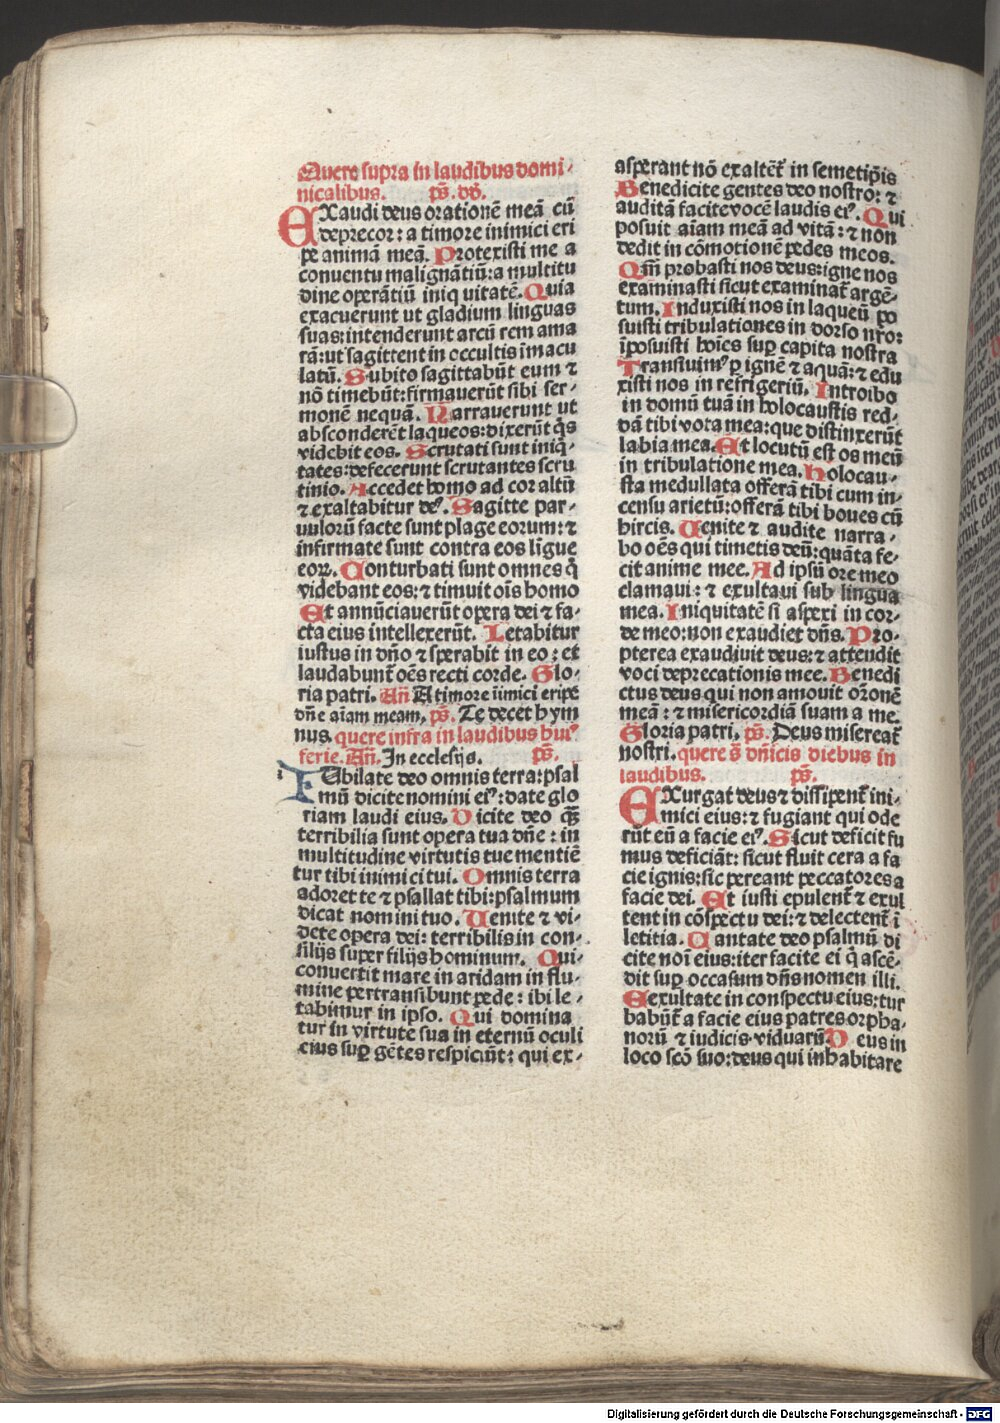 Quere supra in laudibus domi-
nicalibus. ps̄. dd̄.
EXaudi deus orationē meā cū
deprecor: a timore inimici eri
pe animā meā. Protexisti me a
conuentu malignātiū: a multitu
dine operātiū iniq uitatē. Quia
exacuerunt ut gladium linguas
suas: intenderunt arcū rem ama
rā: ut sagittent in occultis īmacu
latū. Subito sagittabūt eum ⁊
nō timebūt: firmauerūt sibi ser-
monē nequā. Narrauerunt ut
absconderēt laqueos: dixerūt q̄s
videbit eos. Scrutati sunt iniq̄-
tates: defecerunt scrutantes scru
tinio. Accedet homo ad cor altū
⁊ exaltabitur deꝰ. Sagitte par-
uulorū facte sunt plage eorum: ⁊
infirmate sunt contra eos ligue
eoꝝ. Conturbati sunt omnes q̄
videbant eos: ⁊ timuit oīs homo
Et annūciauerūt opera dei ⁊ fa-
cta eius intellexerūt. Letabitur
iustus in dn̄o ⁊ sperabit in eo: et
laudabunt oēs recti corde. Glo-
ria patri. Añ A timore īimici eripe
dn̄e aīam meam, ps̄. Te decet hym
nus. quere infra in laudibus huiꝰ
ferie. Añ. In ecclesijs. ps̄.
IUbilate deo omnis terra: psal
mū dicite nomini eiꝰ: date glo
riam laudi eius. Dicite deo q̄ꝫ
terribilia sunt opera tua dn̄e: in
multitudine virtutis tue mentiē
tur tibi inimici tui. Omnis terra
adoret te ⁊ psallat tibi: psalmum
dicat nomini tuo. Uenite ⁊ vi-
dete opera dei: terribilis in con-
silijs super filijs hominum. Qui-
conuertit mare in aridam in flu-
mine pertransibunt pede: ibi le-
tabimur in ipso. Qui domina
tur in virtute sua in eternū oculi
eius suꝑ gētes respiciūt: qui ex-
asperant nō exaltēt᷑ in semetip̄is
Benedicite gentes deo nostro: ⁊
auditā facite vocē laudis eiꝰ. Qui
posuit aīam meā ad vitā: ⁊ non
dedit in cōmotionē pedes meos.
Qm̄ probasti nos deus: igne nos
examinasti sicut examinat᷑ argē-
tum. Induxisti nos in laqueū po
suisti tribulationes in dorso nr̄o:
īposuisti hoīes suꝑ capita nostra
Transiuimꝰ ꝑ ignē ⁊ aquā: ⁊ edu
xisti nos in refrigeriū. Introibo
in domū tuā in holocaustis red-
dā tibi vota mea: que distinxerūt
labia mea. Et locutū est os meū
in tribulatione mea. Holocau-
sta medullata offerā tibi cum in-
censu arietū: offerā tibi boues cū
hircis. Uenite ⁊ audite narra-
bo oēs qui timetis deū: quāta fe-
cit anime mee. Ad ipsū ore meo
clamaui: ⁊ exultaui sub lingua
mea. Iniquitatē si aspexi in cor-
de meo: non exaudiet dn̄s. Pro-
pterea exaudiuit deus: ⁊ attendit
voci deprecationis mee. Benedi
ctus deus qui non amouit or̄onē
meā: ⁊ misericordiā suam a me.
Gloria patri, ps̄. Deus misereat᷑
nostri. quere s̄ dn̄icis diebus in
laudibus. ps̄.
EXurgat deus ⁊ dissipent᷑ ini-
mici eius: ⁊ fugiant qui ode
rūt eū a facie eiꝰ. Sicut deficit fu
mus deficiāt: sicut fluit cera a fa
cie ignis: sic pereant peccatores a
facie dei. Et iusti epulent᷑ ⁊ exul
tent in cōspectu dei: ⁊ delectent᷑ ī
letitia. Cantate deo psalmū di
cite noī eius: iter facite ei q̄ ascē-
dit suꝑ occasum dn̄s nomen illi.
Eexultate in conspectu eius: tur
babūt᷑ a facie eius patres orpha-
norū ⁊ iudicis viduarū. Deus in
loco scō suo: deus qui inhabitare
Digitalisierung gefördert durch die Deutsche Forschungsgemeinschaft - DFG